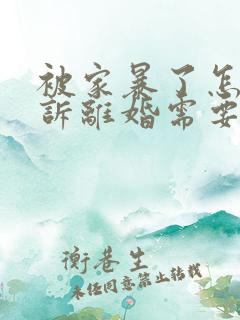 被家暴了怎
訴離婚需要
衡巷生
未经同意禁止转载